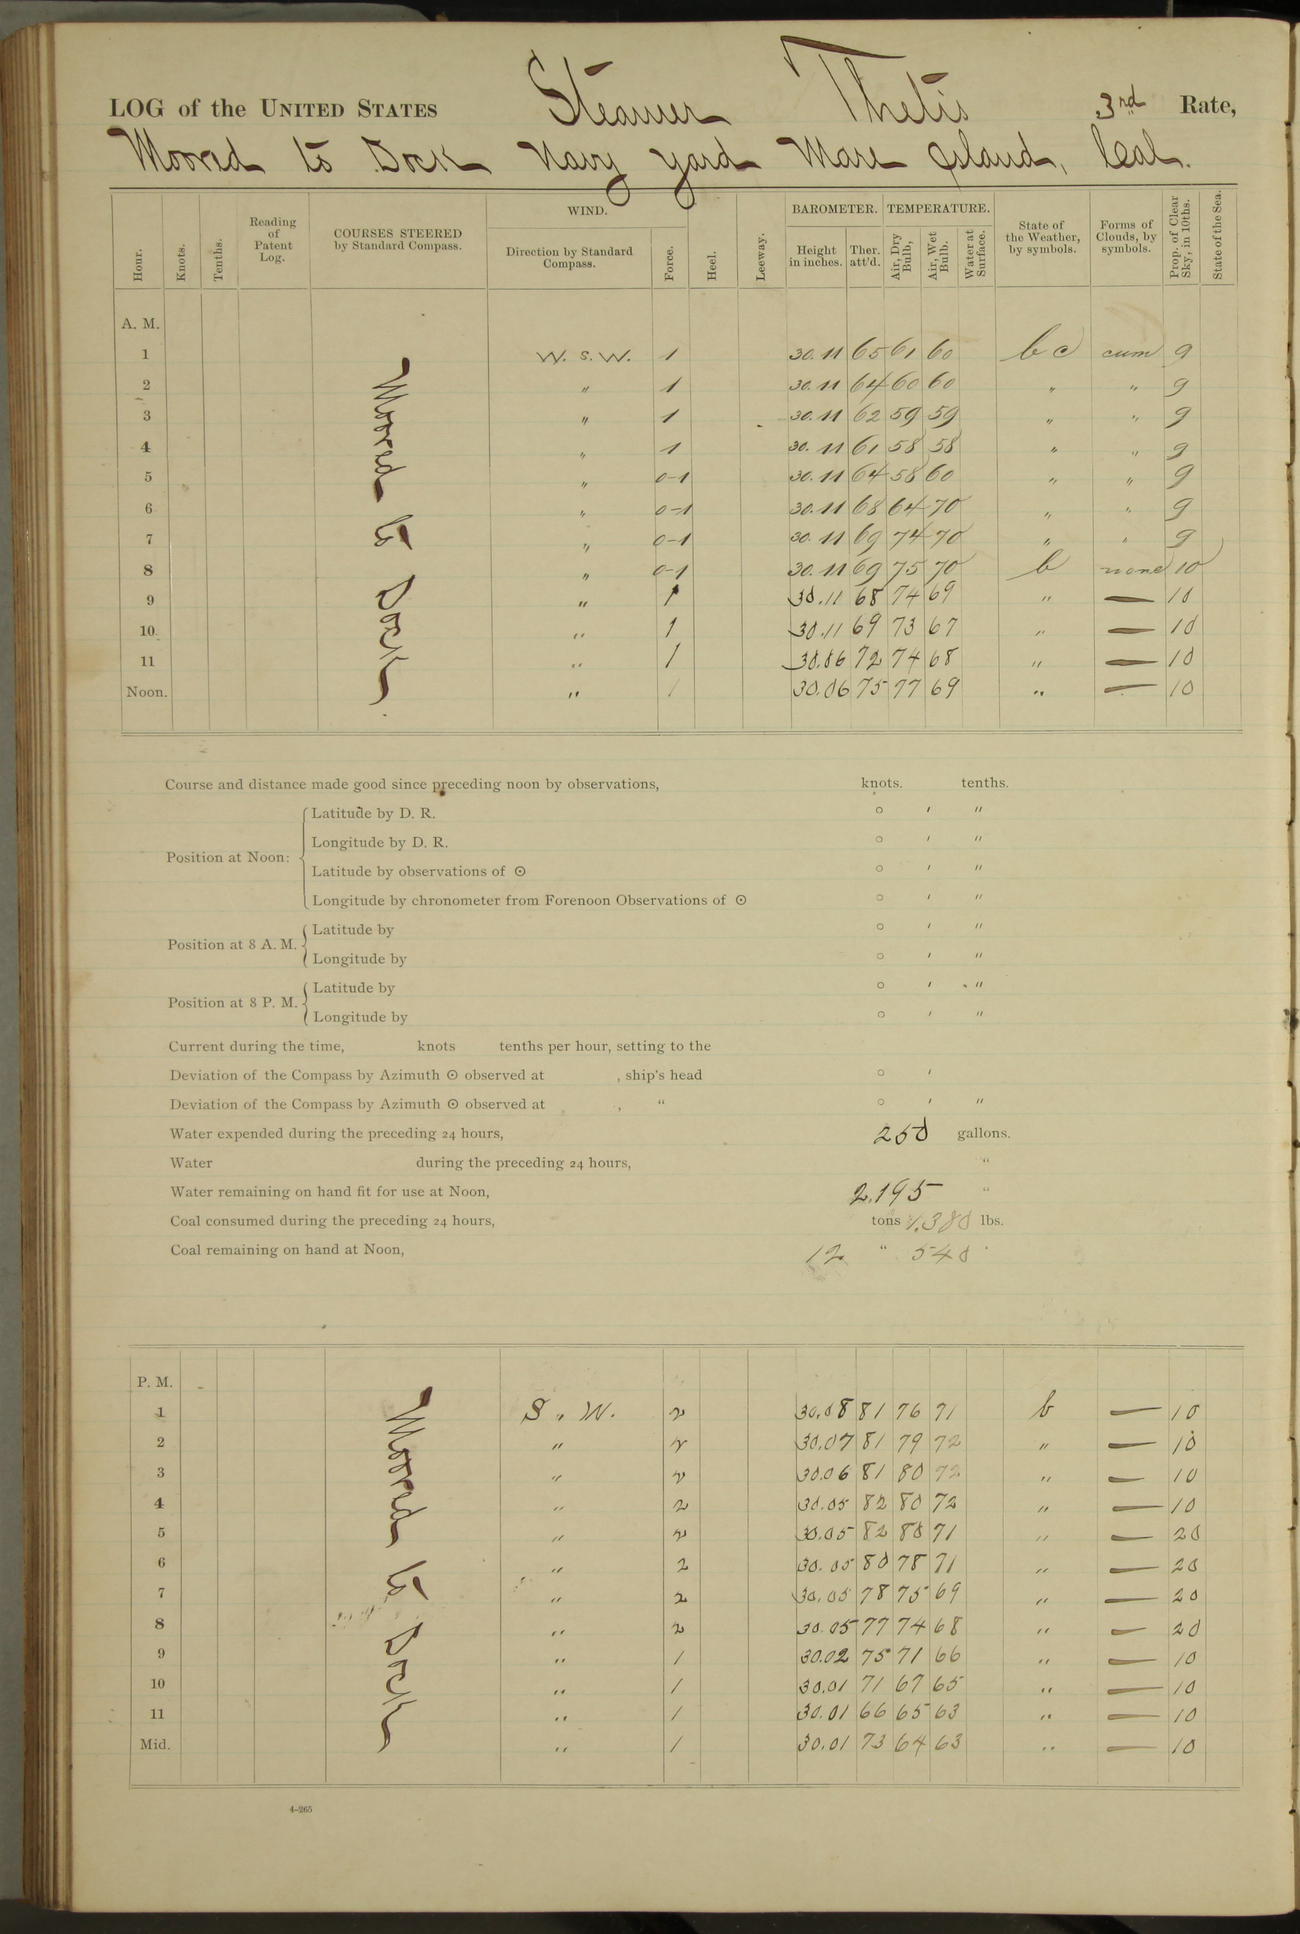 LOG of the UNITED STATES Steamer Thetis 3rd Rate,
Moored to Dock Navy yard Mare Island, Cal.
Hour. Knots. Tenths. Reading of Patent Log. COURSES STEERED by Standard Compass. WIND. Direction by Standard Compass. Force. Heel. Leeway. BAROMETER. Height in inches. Ther. att'd. TEMPERATURE. Air, Dry Bulb, Air, Wet Bulb. Water at Surface. State of the Weather, by symbols. Forms of Clouds, by symbols. Prop. of Clear Sky, in 10ths. State of the Sea.
A. M.
Moored to Dock
1 W. S. W. 1 30.11 65 61 60 b c cum 9
2 " 1 30.11 64 60 60 " " 9
3 " 1 30.11 62 59 59 " " 9
4 " 1 30.11 61 58 58 " " 9
5 " 0-1 30.11 64 58 60 " " 9
6 " 0-1 30.11 68 64 70 " " 9
7 " 0-1 30.11 69 74 70 " " 9
8 " 0-1 30.11 69 75 70 b none 10
9 " 1 30.11 68 74 69 " — 10
10 " 1 30.11 69 73 67 " — 10
11 " 1 30.06 72 74 68 " — 10
Noon. " 1 30.06 75 77 69 " — 10
Course and distance made good since preceding noon by observations, knots. tenths.
Position at Noon:
Latitude by D. R. ° ′ ″
Longitude by D. R. ° ′ ″
Latitude by observations of ⊙ ° ′ ″
Longitude by chronometer from Forenoon Observations of ⊙ ° ′ ″
Position at 8 A. M.
Latitude by ° ′ ″
Longitude by ° ′ ″
Position at 8 P. M.
Latitude by ° ′ ″
Longitude by ° ′ ″
Current during the time, knots tenths per hour, setting to the
Deviation of the Compass by Azimuth ⊙ observed at , ship's head ° ′
Deviation of the Compass by Azimuth ⊙ observed at , " ° ′ ″
Water expended during the preceding 24 hours, 250 gallons.
Water during the preceding 24 hours, "
Water remaining on hand fit for use at Noon, 2,195 "
Coal consumed during the preceding 24 hours, tons 1,380 lbs.
Coal remaining on hand at Noon, 12 " 540 "
P. M.
Moored to Dock
1 S. W. 2 30.08 81 76 71 b — 10
2 " 2 30.07 81 79 72 " — 10
3 " 2 30.06 81 80 72 " — 10
4 " 2 30.05 82 80 72 " — 10
5 " 2 30.05 82 80 71 " — 20
6 " 2 30.05 80 78 71 " — 20
7 " 2 30.05 78 75 69 " — 20
8 " 2 30.05 77 74 68 " — 20
9 " 1 30.02 75 71 66 " — 10
10 " 1 30.01 71 67 65 " — 10
11 " 1 30.01 66 65 63 " — 10
Mid. " 1 30.01 73 64 63 " — 10
4-265